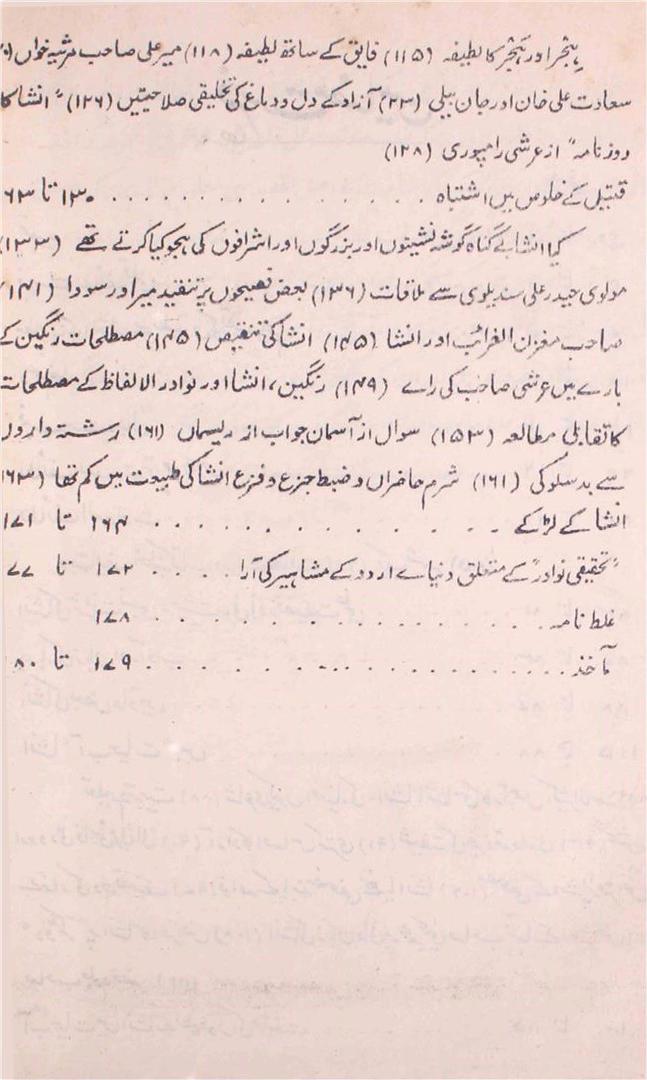 ہِجّر اور ہَجّر کا لطیفہ (۱۱۵) فایق کے ساتھ لطیفہ (۱۱۸) میر علی صاحب مرثیہ خواں
سعادت علی خان اور جان بیلی (۲۳) آزاد کے دل و دماغ کی تخلیقی صلاحیتیں (۱۲۶) "انشا کا
روزنامہ" از عرشی رامپوری (۱۲۸)
قتیل کے خلوص میں اشتباہ . . . . . . . . . . . . . . ۱۳۰ تا ۶۳
کیا انشا بے گناہ گوشہ نشینوں اور بزرگوں اور اشرافوں کی ہجو کیا کرتے تھے (۱۳۳)
مولوی حیدر علی سندیلوی سے ملاقات (۱۳۶) بعض نصیحوں پر تنقید میر اور سودا (۱۴۱)
صاحب مخزن الغرائب اور انشا (۱۴۵) انشا کی تنقیص (۱۴۵) مصطلحات رنگین کے
بارے میں عرشی صاحب کی راے (۱۴۹) رنگین، انشا اور نوادر الالفاظ کے مصطلحات
کا تقابلی مطالعہ (۱۵۳) سوال از آسمان جواب از ریسماں (۱۶۱) رشتہ داروں
سے بدسلوکی (۱۶۱) شرم حاضراں و ضبط جزع و فزع انشا کی طبیعت میں کم تھا (۱۶۳)
انشا کے لڑکے . . . . . . . . . . . ۱۶۴ تا ۱۷۱
"تحقیقی نوادر" کے متعلق دنیاے اردو کے مشاہیر کی آرا . . . . ۱۷۲ تا ۷۷
غلط نامہ . . . . . . . . . . . . . . ۱۷۸
مآخذ . . . . . . . . . . . . . . ۱۷۹ تا ۸۰